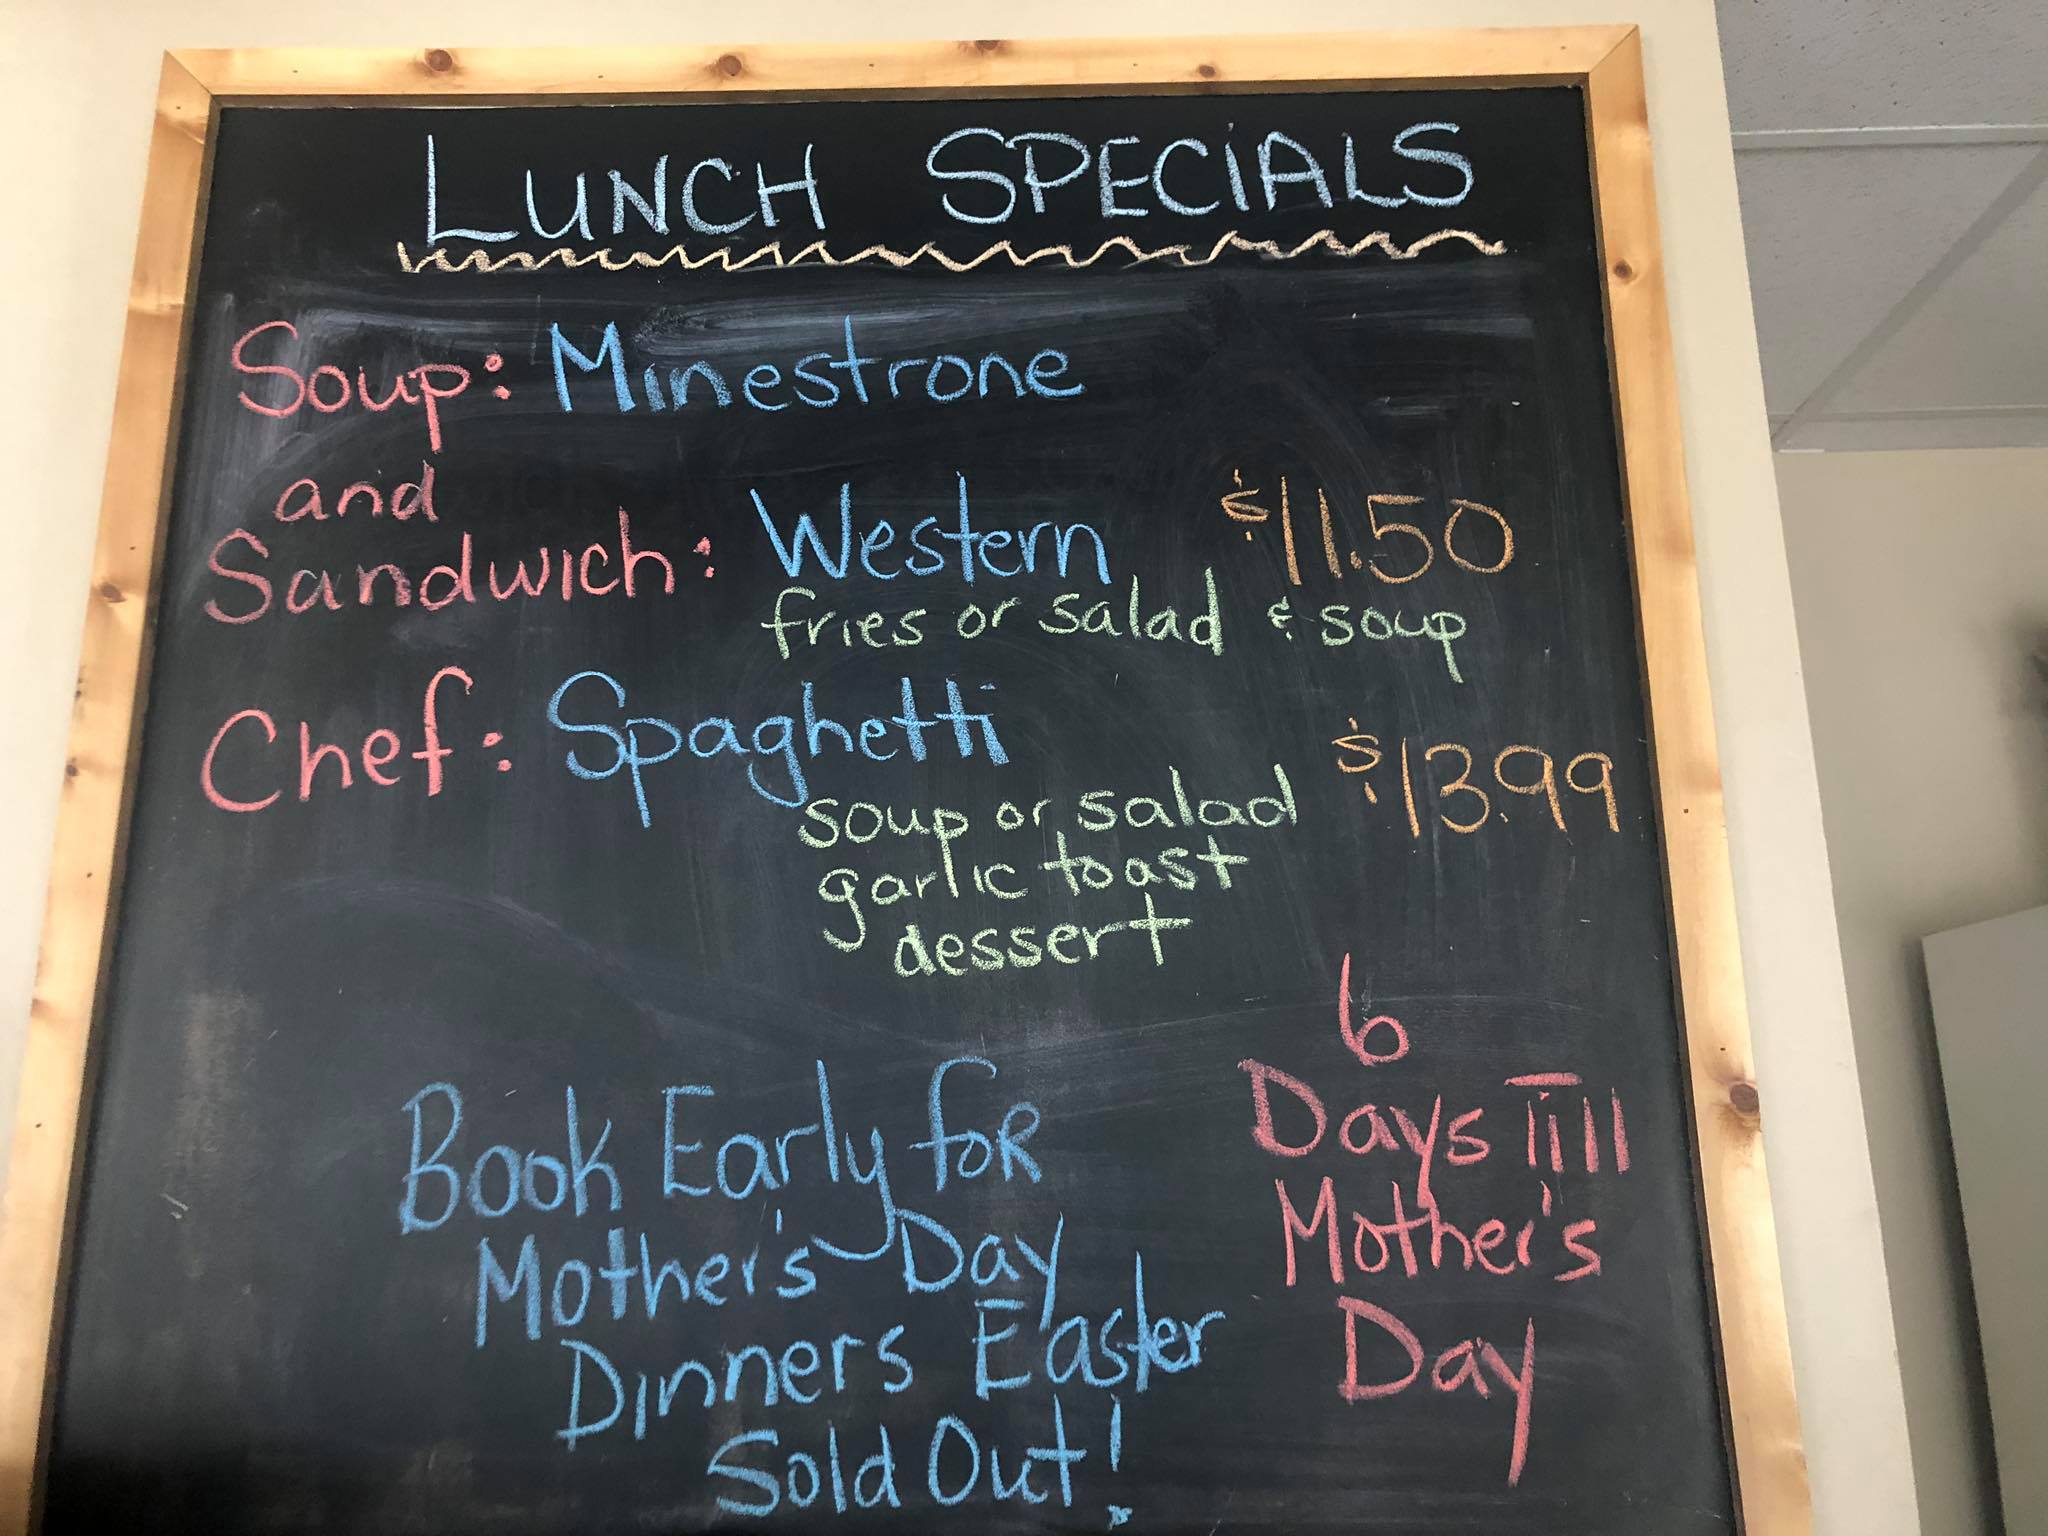 LUNCH SPECiALS
Soup: Minestrone
and
Sandwich: Western $11.50
fries or salad & soup
Chef: Spaghetti $13.99
soup or salad
garlic toast
dessert
6
Days Till
Mother's
Day
Book Early foR
Mother's Day
Dinners Easter
Sold Out!